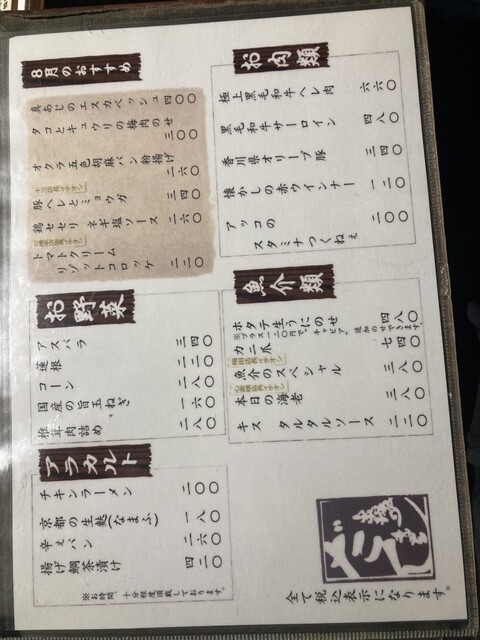 8月のおすすめ
真あじのエスカベッシュ 四〇〇
タコとキュウリの梅肉のせ
三〇〇
オクラ五色胡麻パン粉揚げ
二六〇
豚ヘレとミョウガ 三四〇
鶏セセリ ネギ塩ソース 二六〇
トマトクリーム
リゾットコロッケ 二二〇
お肉類
極上黒毛和牛ヘレ肉 六六〇
黒毛和牛サーロイン 四八〇
香川県オリーブ豚 三四〇
懐かしの赤ウインナー 一二〇
アッコの
スタミナつくねぇ 二〇〇
お野菜
アスパラ 三四〇
蓮根 二二〇
コーン 二八〇
国産の旨玉ねぎ 一六〇
椎茸肉詰め 二八〇
魚介類
ホタテ生うにのせ 四八〇
※プラス一二〇円で、キャビア、追加のせできます。
カニ爪 七四〇
魚介のスペシャル 三八〇
本日の海老 三八〇
キス タルタルソース 二二〇
アラカルト
チキンラーメン 二〇〇
京都の生麩(なまふ) 一八〇
辛ぇパン 二六〇
揚げ鯛茶漬け 四二〇
※お時間、十分程度頂戴しております。
全て税込表示になります。